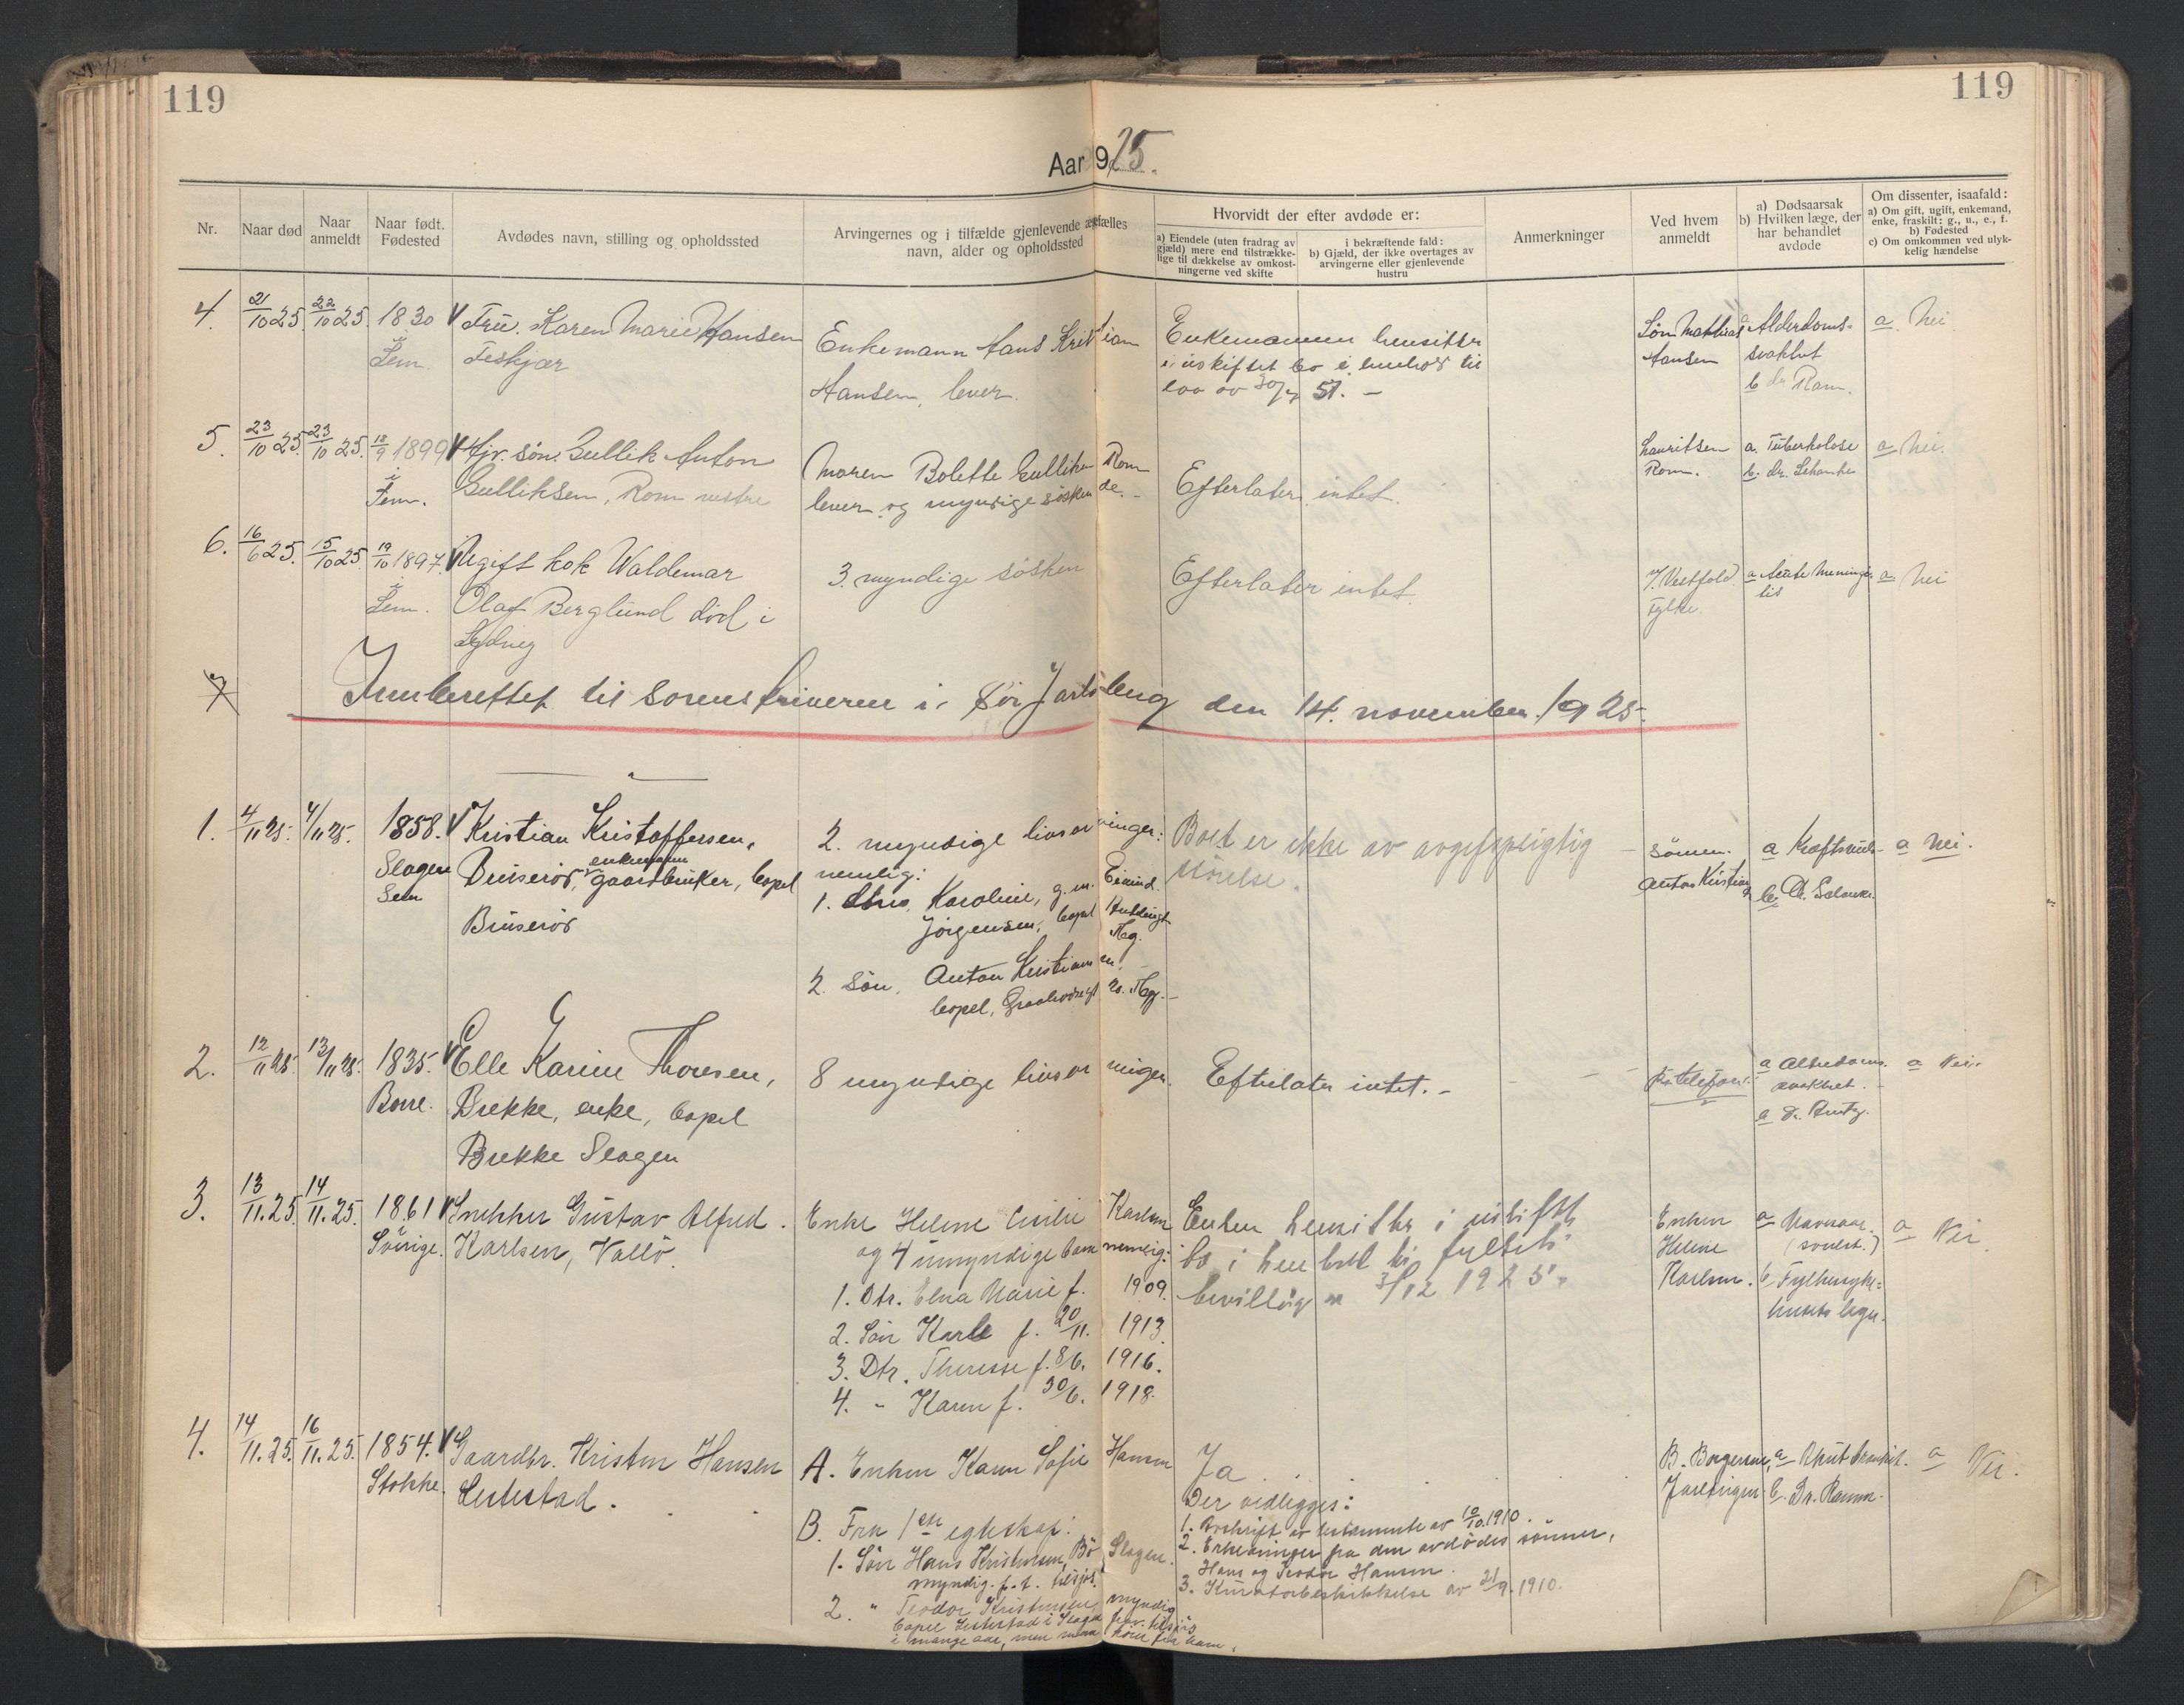 119
119
Aar 1925.
Nr.
Naar død
Naar anmeldt
Naar født. Fødested
Avdødes navn, stilling og opholdssted
Arvingernes og i tilfælde gjenlevende ægtefælles navn, alder og opholdssted
Hvorvidt der efter avdøde er:
a) Eiendele (uten fradrag av gjæld) mere end tilstrækkelige til dækkelse av omkostningerne ved skifte
i bekræftende fald: b) Gjæld, der ikke overtages av arvingerne eller gjenlevende hustru
Anmerkninger
Ved hvem anmeldt
a) Dødsaarsak b) Hvilken læge, der har behandlet avdøde
Om dissenter, isaafald: a) Om gift, ugift, enkemand, enke, fraskilt: g., u., e., f. b) Fødested c) Om omkommen ved ulykkelig hændelse
4. 21/10 25. 22/10 25. 1830 i Sem.
Fru Karen Marie Hansen
Feskjær
Enkemann Hans Kristian
Hansen, lever.
Enkemannen hensitter
i uskiftet bo i henhold til
lov av 30/7 51. -
Søn Mathias
Hansen
a Alderdoms-
svakhet
b dr Ram.
a. Nei
5. 23/10 25. 23/10 25. 18/9 1899 i Sem.
Hjv. søn. Gullik Anton
Gulliksen, Rom vestre
Maren Bolette Gulliksen Rom
lever og myndige søskende. -
Efterlater intet.
Lauritsen
Rom.
a. Tuberkolose
b. dr.
a Nei.
6. 16/6 25. 15/10 25. 19/10 1897. i Sem.
Ugift kok Waldemar
Olaf Berglund død i
Sydney
3 myndige søsken
Efterlater intet.
Vestfold
Fylke.
a Acute Meningitis
a. Nei
7
Innberettet til sorenskriveren i Sør Jarlsberg den 14. november 1925.
1. 4/11 25. 4/11 25. 1858. Slagen Sem
Kristian Kristoffersen,
Buserød, enkemann gaardbruker, bopel
Buserød
2 myndige livsarvinger:
nemlig:
1. Karoline, g.m. Eivind
Jørgensen, bopel Tbg.
2. Søn, Anton Kristiansen,
bopel, Tbg. -
Boet er ikke av avgifspligtig
størrelse.
Sønnen.
Anton Kristians
a Kræftsvulst
b.
a Nei.
2. 12/11 25. 13/11 25. 1835. Borre.
Elle Karine Thoresen,
Brekke, enke, bopel
Brekke Slagen
8 myndige livsarvinger.
Efterlater intet. -
Pr. telefon.
a Alderdoms-
svakhet.
a dr.
a Nei.
3. 13/11. 25. 14/11. 25. 1861 Sverige.
Snekker Gustav Alfred
Karlsen, Vallø.
Enke Helene Cecilie Karlsen
og 4 umyndige barn nemlig:
1. Dtr. Elna Marie f. 1909.
2. Søn Karle f. 20/11. 1913.
3. Dtr. Therese f. 8/6. 1916.
4. " Karen f. 30/6. 1918.
Enken hensitter i uskiftet
bo i henhold til fylkets
bevilling av 3/12 1925.
Enken
Helene
Karlsen.
a
b. Fylkessyke-
husets læge.
a Nei
4. 14/11. 25. 16/11. 25. 1854. Stokke.
Gaardbr. Kristen Hansen
Lestestad.
A. Enken Karen Sofie Hansen
B. Fra 1ste egteskap:
1. Søn Hans Kristensen, Bø Slagen.
myndig. f. t. tilsjøs.
2. " Teodor Kristensen, myndig
bopel Lestestad i Slagen
i mange aar, men
Ja
Der vedlegges:
1. Avskrift av testamente av 10/10. 1910.
2. Erklæringer fra den avdødes sønner,
Hans og Teodor Hansen.
3. Kuratorbeskikkelse av 21/9. 1910.
B. Borgersen,
a
b. Dr. Ramm.
a Nei.